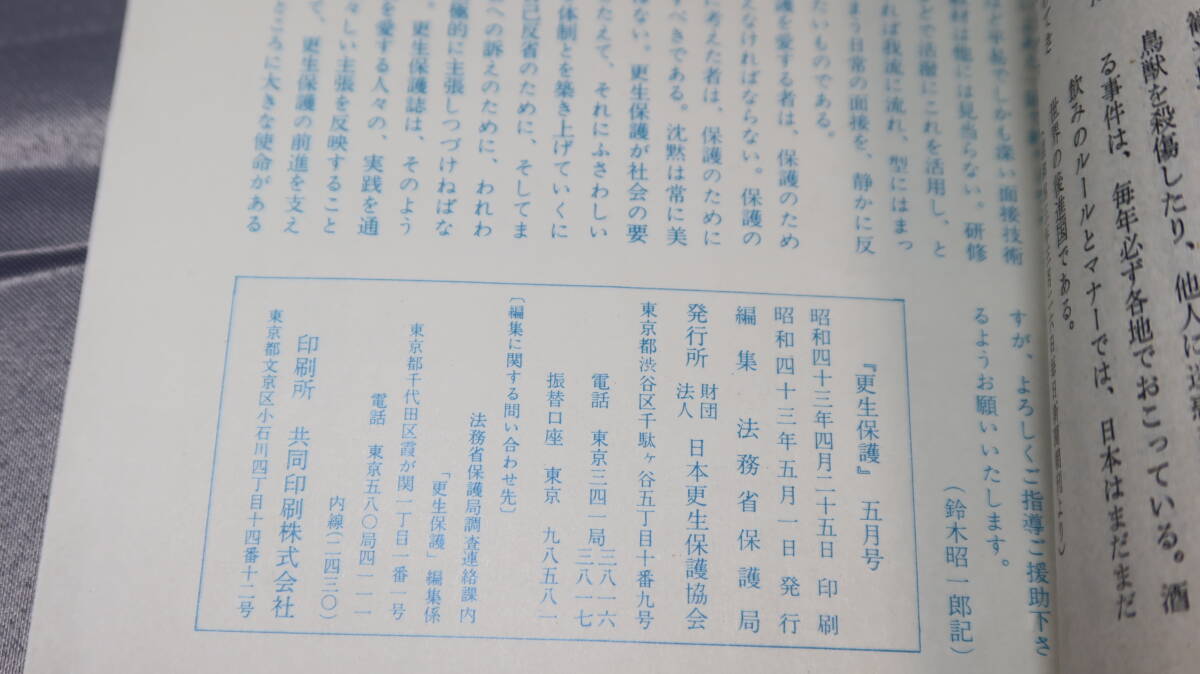 鳥獣を殺傷したり、他人に
る事件は、毎年必ず各地でおこっている。酒
飲みのルールとマナーでは、日本はまだまだ
世界の後進国である。
しかも深い面接技術
教材は他には見当らない。研修
などで活潑にこれを活用し、と
れば我流に流れ、型にはまっ
まう日常の面接を、静かに反
たいものである。
護を愛する者は、保護のため
えなければならない。保護の
に考えた者は、保護のために
すべきである。沈黙は常に美
ない。更生保護が社会の要
たえて、それにふさわしい
体制とを築き上げていくに
己反省のために、そしてま
への訴えのために、われわ
働的に主張しつづけねばな
。更生保護誌は、そのよう
を愛する人々の、実践を通
々しい主張を反映すること
て、更生保護の前進を支え
ところに大きな使命がある
すが、よろしくご指導ご援助下さ
るようお願いいたします。
（鈴木昭一郎記）
『更生保護』 五月号
昭和四十三年四月二十五日 印刷
昭和四十三年五月一日 発行
編集 法務省保護局
発行所 財団法人 日本更生保護協会
東京都渋谷区千駄ヶ谷五丁目十番九号
電話 東京三四一局 三八一六
三八一七
振替口座 東京 九八五八一
〔編集に関する問い合わせ先〕
法務省保護局調査連絡課内
「更生保護」編集係
東京都千代田区霞が関一丁目一番一号
電話 東京五八〇局四一一一
内線（二四三〇）
印刷所 共同印刷株式会社
東京都文京区小石川四丁目十四番十二号